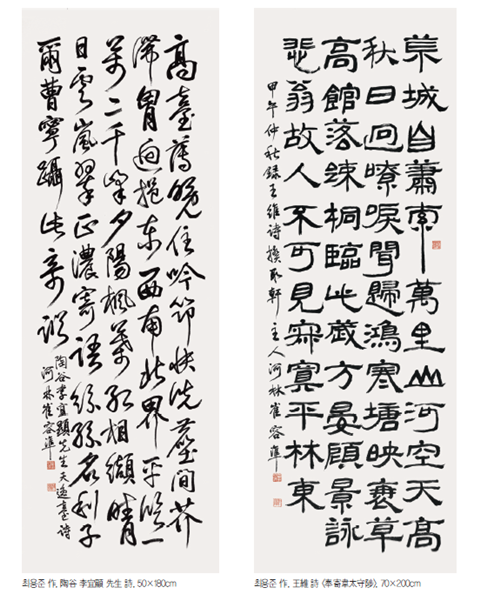 高臺薄晚住吟筇快洗塵間芥
滯胸迥挹東西南北界平臨一
萬二千峯夕陽楓葉紅相纈晴
日雲嵐翠正濃寄語紛紛名利子
爾曹寧躡此奇蹤
陶谷李宜顯先生天逸臺詩
河林崔容準
최용준 作, 陶谷 李宜顯 先生 詩, 50×180cm
荒城自蕭索萬里山河空天高
秋日迥嘹唳聞歸鴻寒塘映衰草
高館落疎桐臨此歲方晏顧景詠
悲翁故人不可見寂寞平林東
甲午仲秋錄王維詩 軒主人河林崔容準
최용준 作, 王維 詩 《奉寄韋太守陟》, 70×200cm